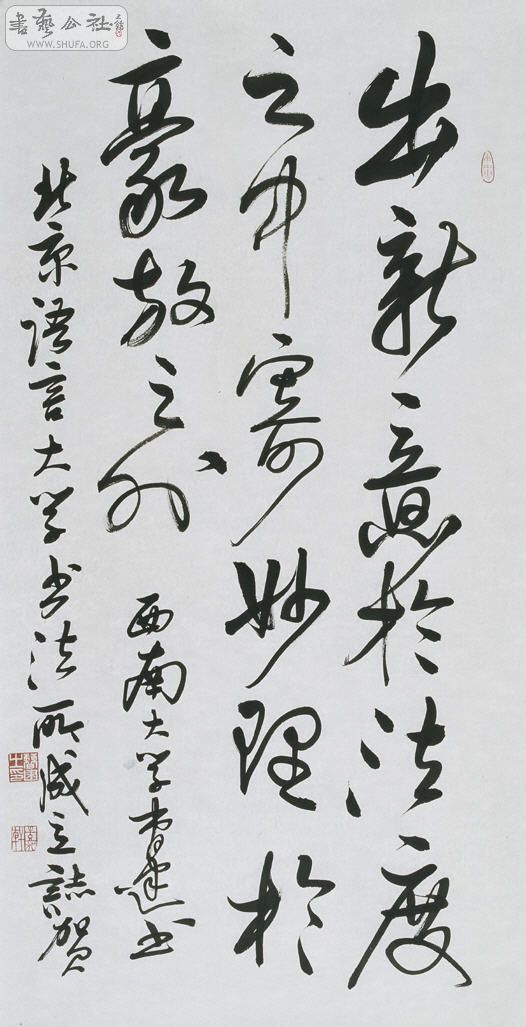 書藝公社
WWW.SHUFA.ORG
出新意於法度
之中寄妙理於
豪放之外
西南大学曹建书
北京语言大学书法所成立誌贺